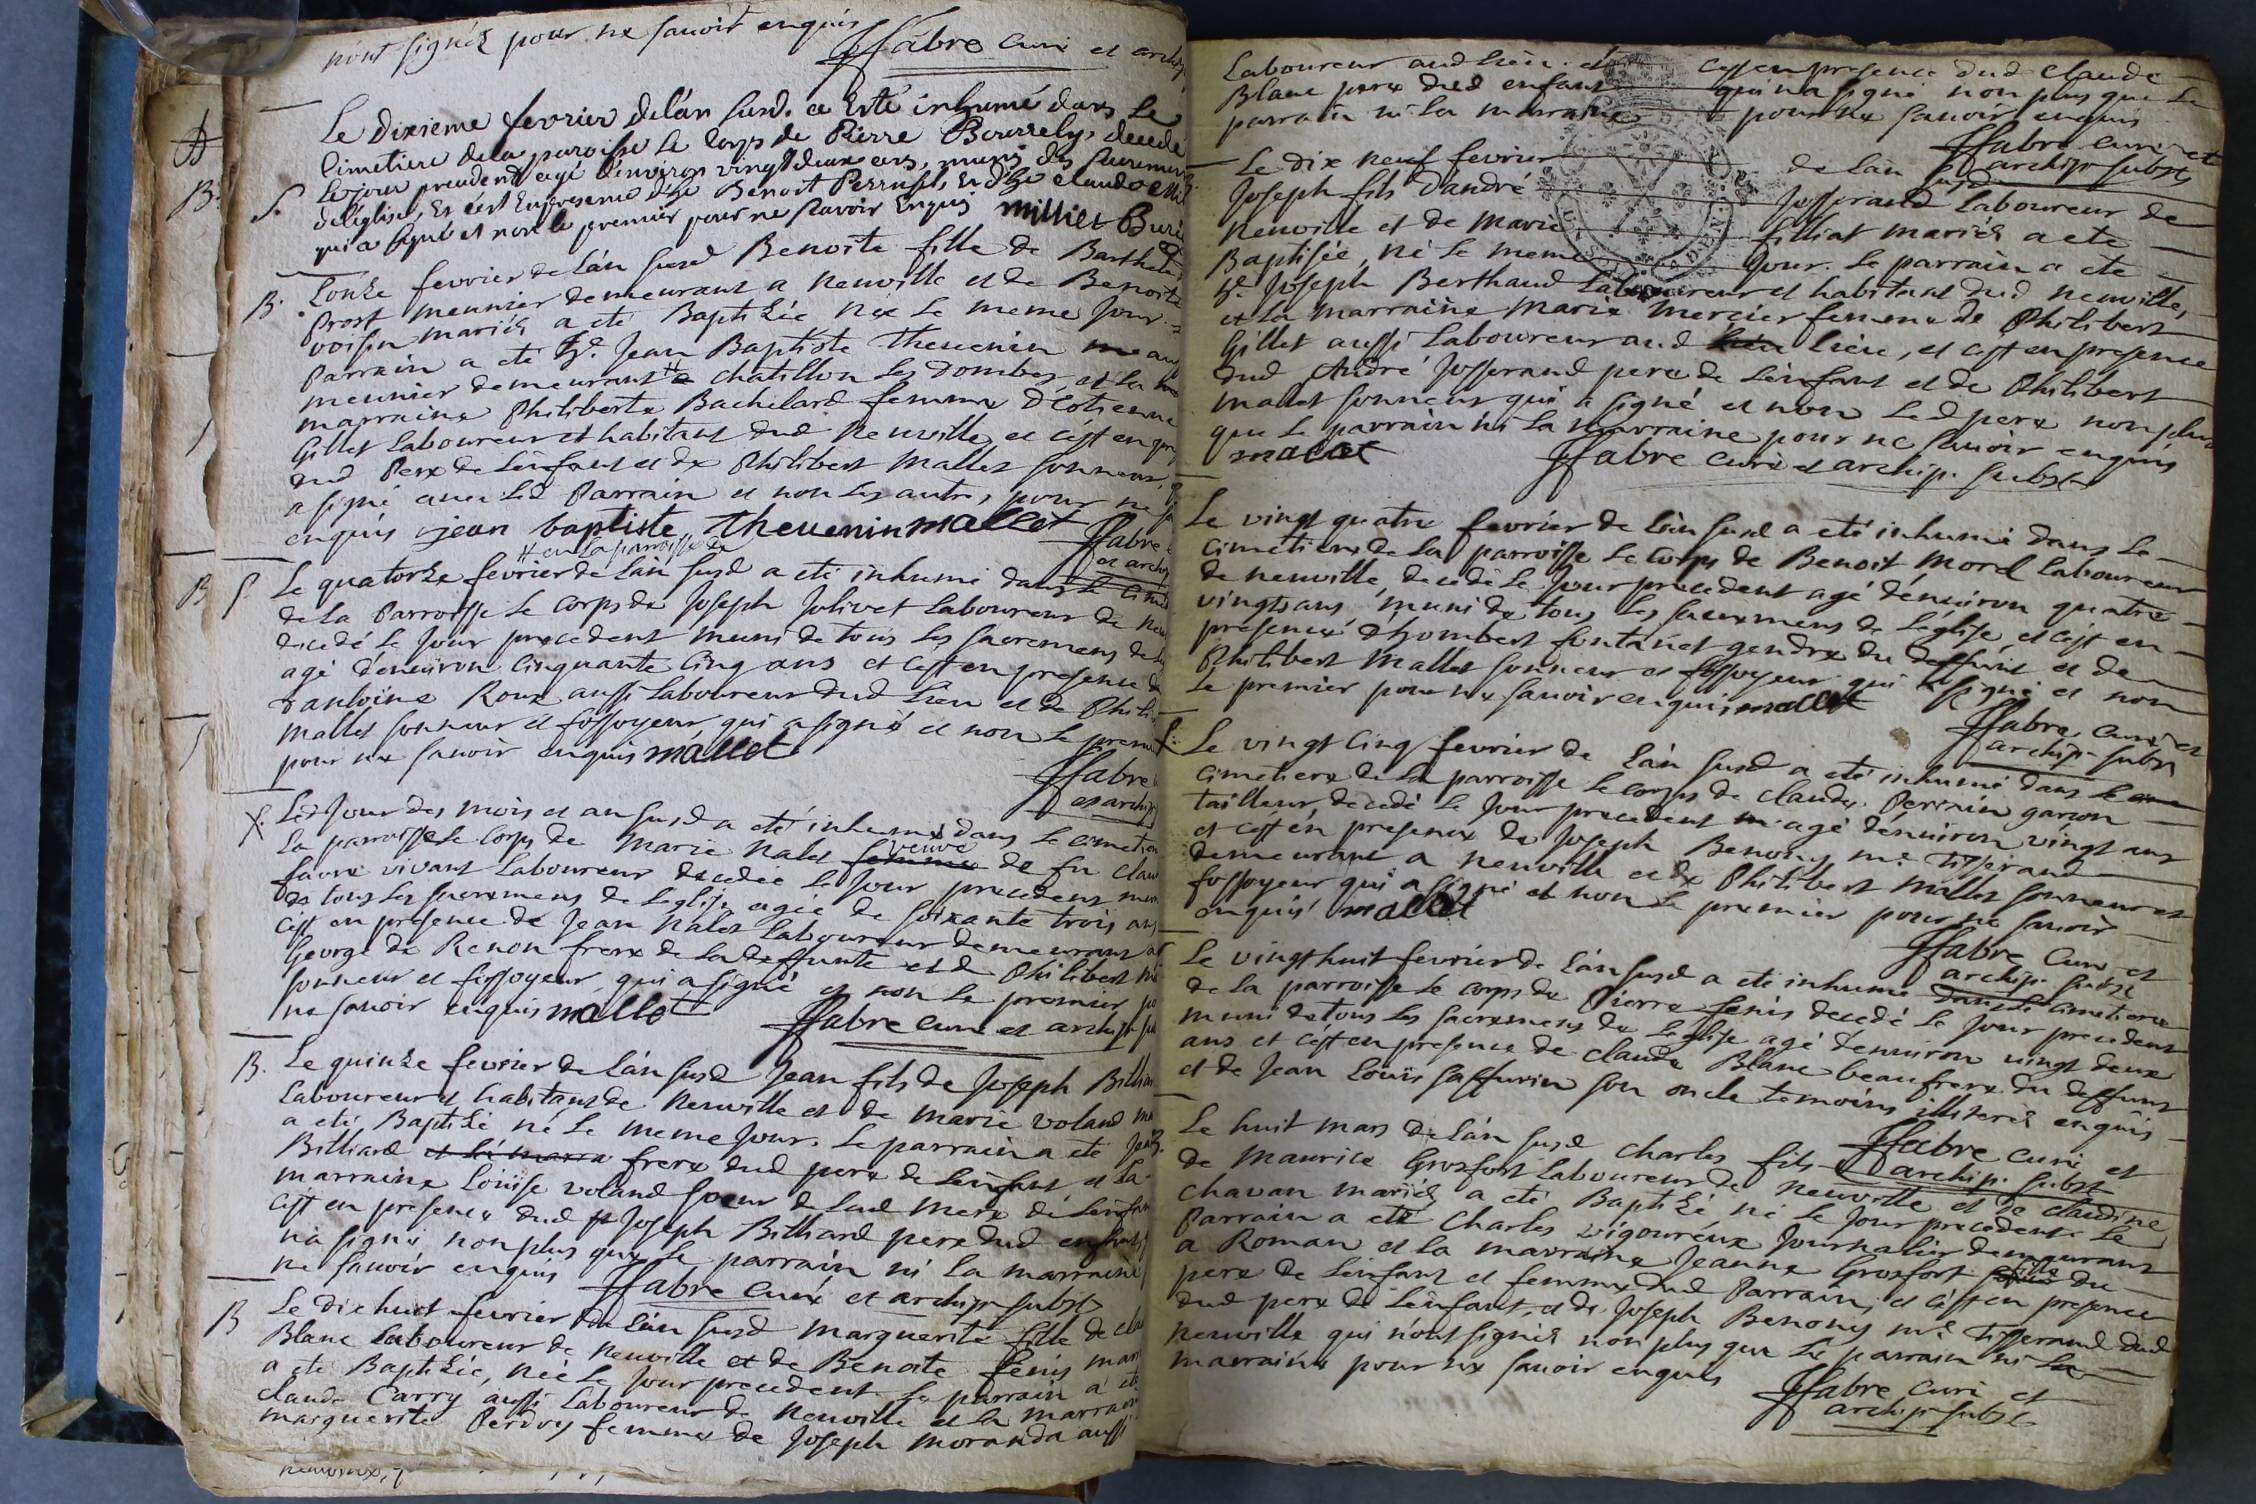 n'ont signés pour ne savoir enquis
ffabre curé et archip
Le dixieme fevrier de l'an susd. a esté inhumé dans le
Cimetiere de la paroisse le corps de Pierre Bourrely, decedé
le jour precedent agé d'environ vingt deux ans, muni des sacremens
de l'eglise, et c'est en presence de Benoit Perruset, et de claude
qui a signé et non le premier pour ne scavoir enquis millier Buri
B. L'onze fevrier de l'an susd Benoite fille de Barthele
Prost meunier demeurant a neuville et de Benoite
voisin mariés a eté Baptisée née le meme jour. Le
Parrain a eté hle. Jean Baptiste Thevenin
meunier demeurant a chatillon les Dombes, et la
marraine Philiberte Bachelard femme d'Estienne
Gillet laboureur et habitant dud Neuville, et c'est en pre
dud Pere de l'enfant et de Philibert Mallet sonneur, q
a signé avec led Parrain et non les autres pour ne sa
enquis jean baptiste thevenin mallet ffabre
en la parroisse de
et archip
B S. Le quatorze fevrier de l'an susd a eté inhumé dans le cime
de la Parroisse le corps de Joseph Jolivet laboureur de neu
decedé le jour precedent muni de tous les sacremens de l'e
agé d'environ cinquante cinq ans et c'est en presence de
antoine Roux aussi laboureur dud lieu et de Phili
mallet sonneur et fossoyeur qui a signé et non le premi
pour ne savoir enquis mallet
ffabre
et archip
S. Led jour des mois et an susd a eté inhumé dans le cimetiere
la parroisse le corps de Marie Nalet femme veuve de feu clau
favre vivant laboureur decedée le jour precedent mun
de tous les sacremens de l'eglise agée de soixante trois ans
c'est en presence de Jean Nalet laboureur demeurant a S
George de Renon frere de la deffunte et de Philibert Ma
sonneur et fossoyeur qui a signé et non le premier po
ne savoir enquis mallet ffabre curé et archip su
B. Le quinze fevrier de l'an susd Jean fils de Joseph Billia
laboureur et habitant de Neuville et de marie voland ma
a eté Baptisé né le meme jour. Le parrain a eté Jean
Billiard et la marra frere dud pere de l'enfant et la
marraine Loüise voland soeur de lad mere de l'enfan
c'est en presence dud Joseph Billiard pere dud enfant
n'a signé non plus que le parrain ni la marraine
ne savoir enquis ffabre curé et archip subst
B Le dix huit fevrier de l'an susd marguerite fille de cla
Blanc laboureur de neuville et de Benoite fenis mari
a eté Baptisée, née le jour precedent. Le parrain a eté
claude Carry aussi laboureur de neuville et la marraine
marguerite Perdoy femme de Joseph moranda aussi
laboureur aud lieu. et c'est en presence dud claude
Blanc pere dud enfant qui n'a signé non plus que le
parrain ni la marraine pour ne savoir enquis
ffabre curé et
archip. subst
Le dix neuf fevrier de l'an susd
Joseph fils d'andré Josserand laboureur de
neuville et de marie filliat mariés a eté
Baptisée, né le meme jour. Le parrain a eté
hle Joseph Berthaud laboureur et habitant dud neuville,
et la marraine marie mercier femme de Philibert
Gillet aussi laboureur aud lieu lieu, et c'est en presence
dud André Josserand pere de l'enfant et de Philibert
mallet sonneur qui a signé et non led pere non plus
que le parrain ni la marraine pour ne savoir enquis
mallet ffabre curé et archip. subst
Le vingt quatre fevrier de l'an susd a eté inhumé dans le
cimetiere de la parroisse le corps de Benoit Morel laboureur
de neuville, decedé le jour precedent agé d'environ quatre
vingts ans muni de tous les sacremens de l'eglise, et c'est en
presence d'hombert fontanet gendre du deffunt et de
Philibert Mallet sonneur et fossoyeur qui a signé et non
le premier pour ne savoir enquis mallet
ffabre curé et
archip. subst
S. Le vingt cinq fevrier de l'an susd a eté inhumé dans le
cimetiere de la parroisse le corps de claude Perrain garcon
tailleur decedé le jour precedent agé d'environ vingt ans
et c'est en presence de Joseph Benony me Tisserand
demeurant a neuville et de Philibert Mallet sonneur et
fossoyeur qui a signé et non le premier pour ne savoir
enquis mallet
ffabre curé et
archip. subst
Le vingthuit fevrier de l'an susd a eté inhumé dans le cimetiere
de la parroisse le corps de Pierre fenis decedé le jour precedent
muni de tous les sacremens de l'eglise agé d'environ vingt deux
ans et c'est en presence de claude Blanc beaufrere du deffunt
et de Jean Loüis saffurin son oncle temoins illiterés enquis
ffabre curé et
archip. subst
Le huit mars de l'an susd Charles fils
de maurice Grosfort laboureur de neuville et de claudine
chavan mariés a eté Baptisé né le jour precedent. Le
Parrain a eté Charles vigoureux journalier demeurant
a Roman et la marraine Jeanne Grosfort du
pere de l'enfant et femme dud Parrain, et c'est en presence
dud pere de l'enfant, et de Joseph Benony me Tisserand dud
neuville qui n'ont signés non plus que le parrain ni la
marraine pour ne savoir enquis
ffabre curé et
archip. subst